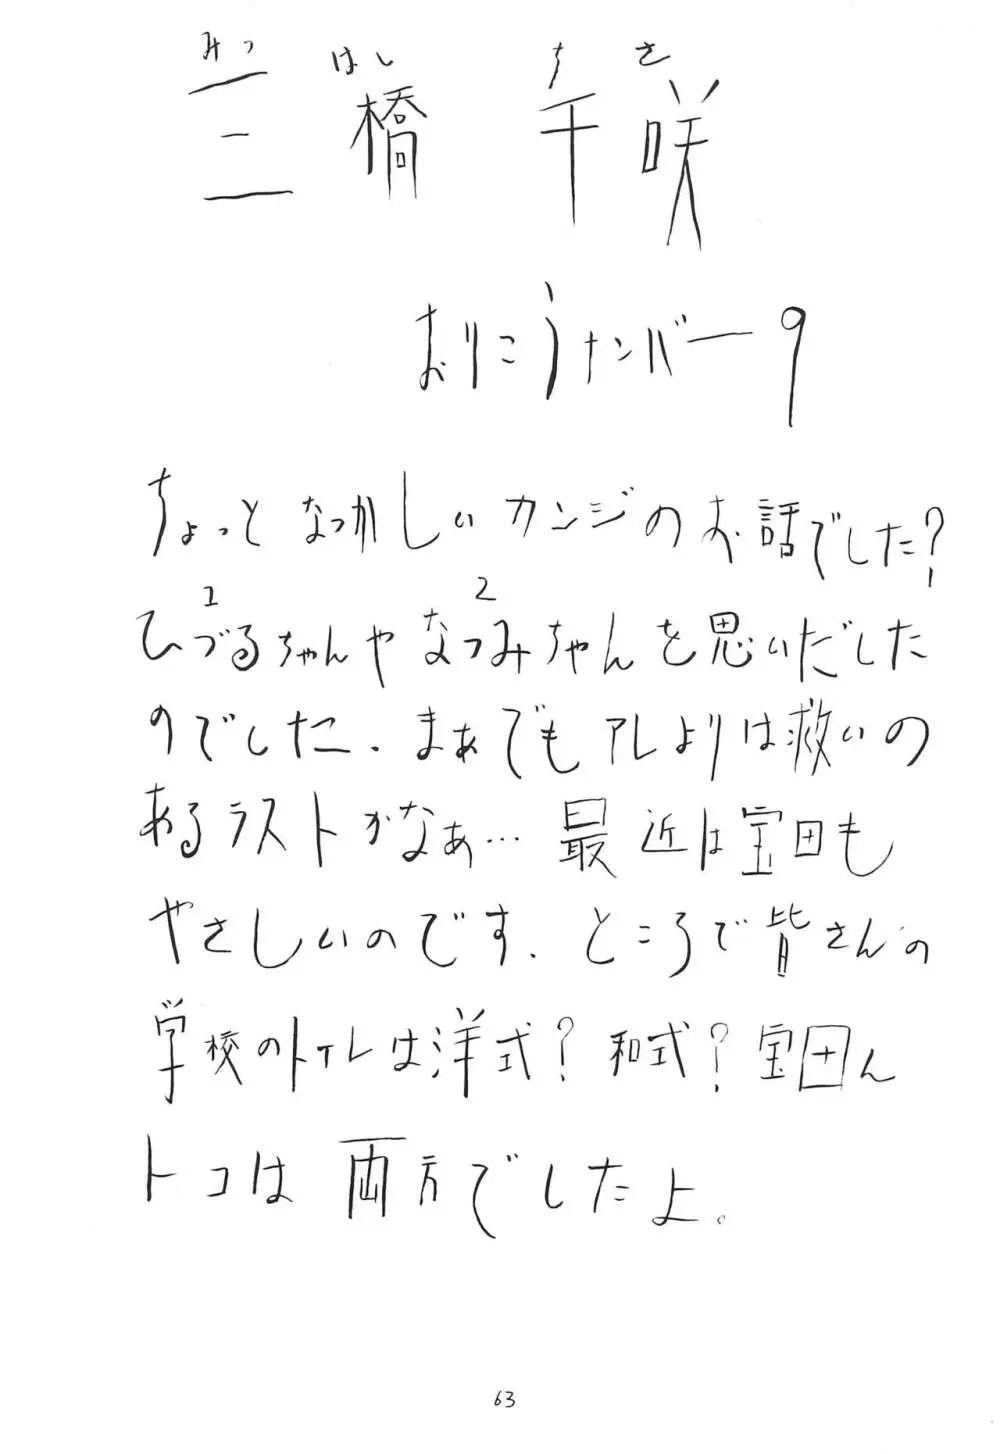 みつ はし ちさ
三橋 千咲
おりこうナンバー9
ちょっとなつかしいカンジのお話でした?
1 2
ひづるちゃんやなつみちゃんを思いだした
のでした。まぁでもアレよりは救いの
あるラストかなぁ… 最近は宝田も
やさしいのです。ところで皆さんの
学校のトイレは洋式?和式?宝田ん
トコは両方でしたよ。
63